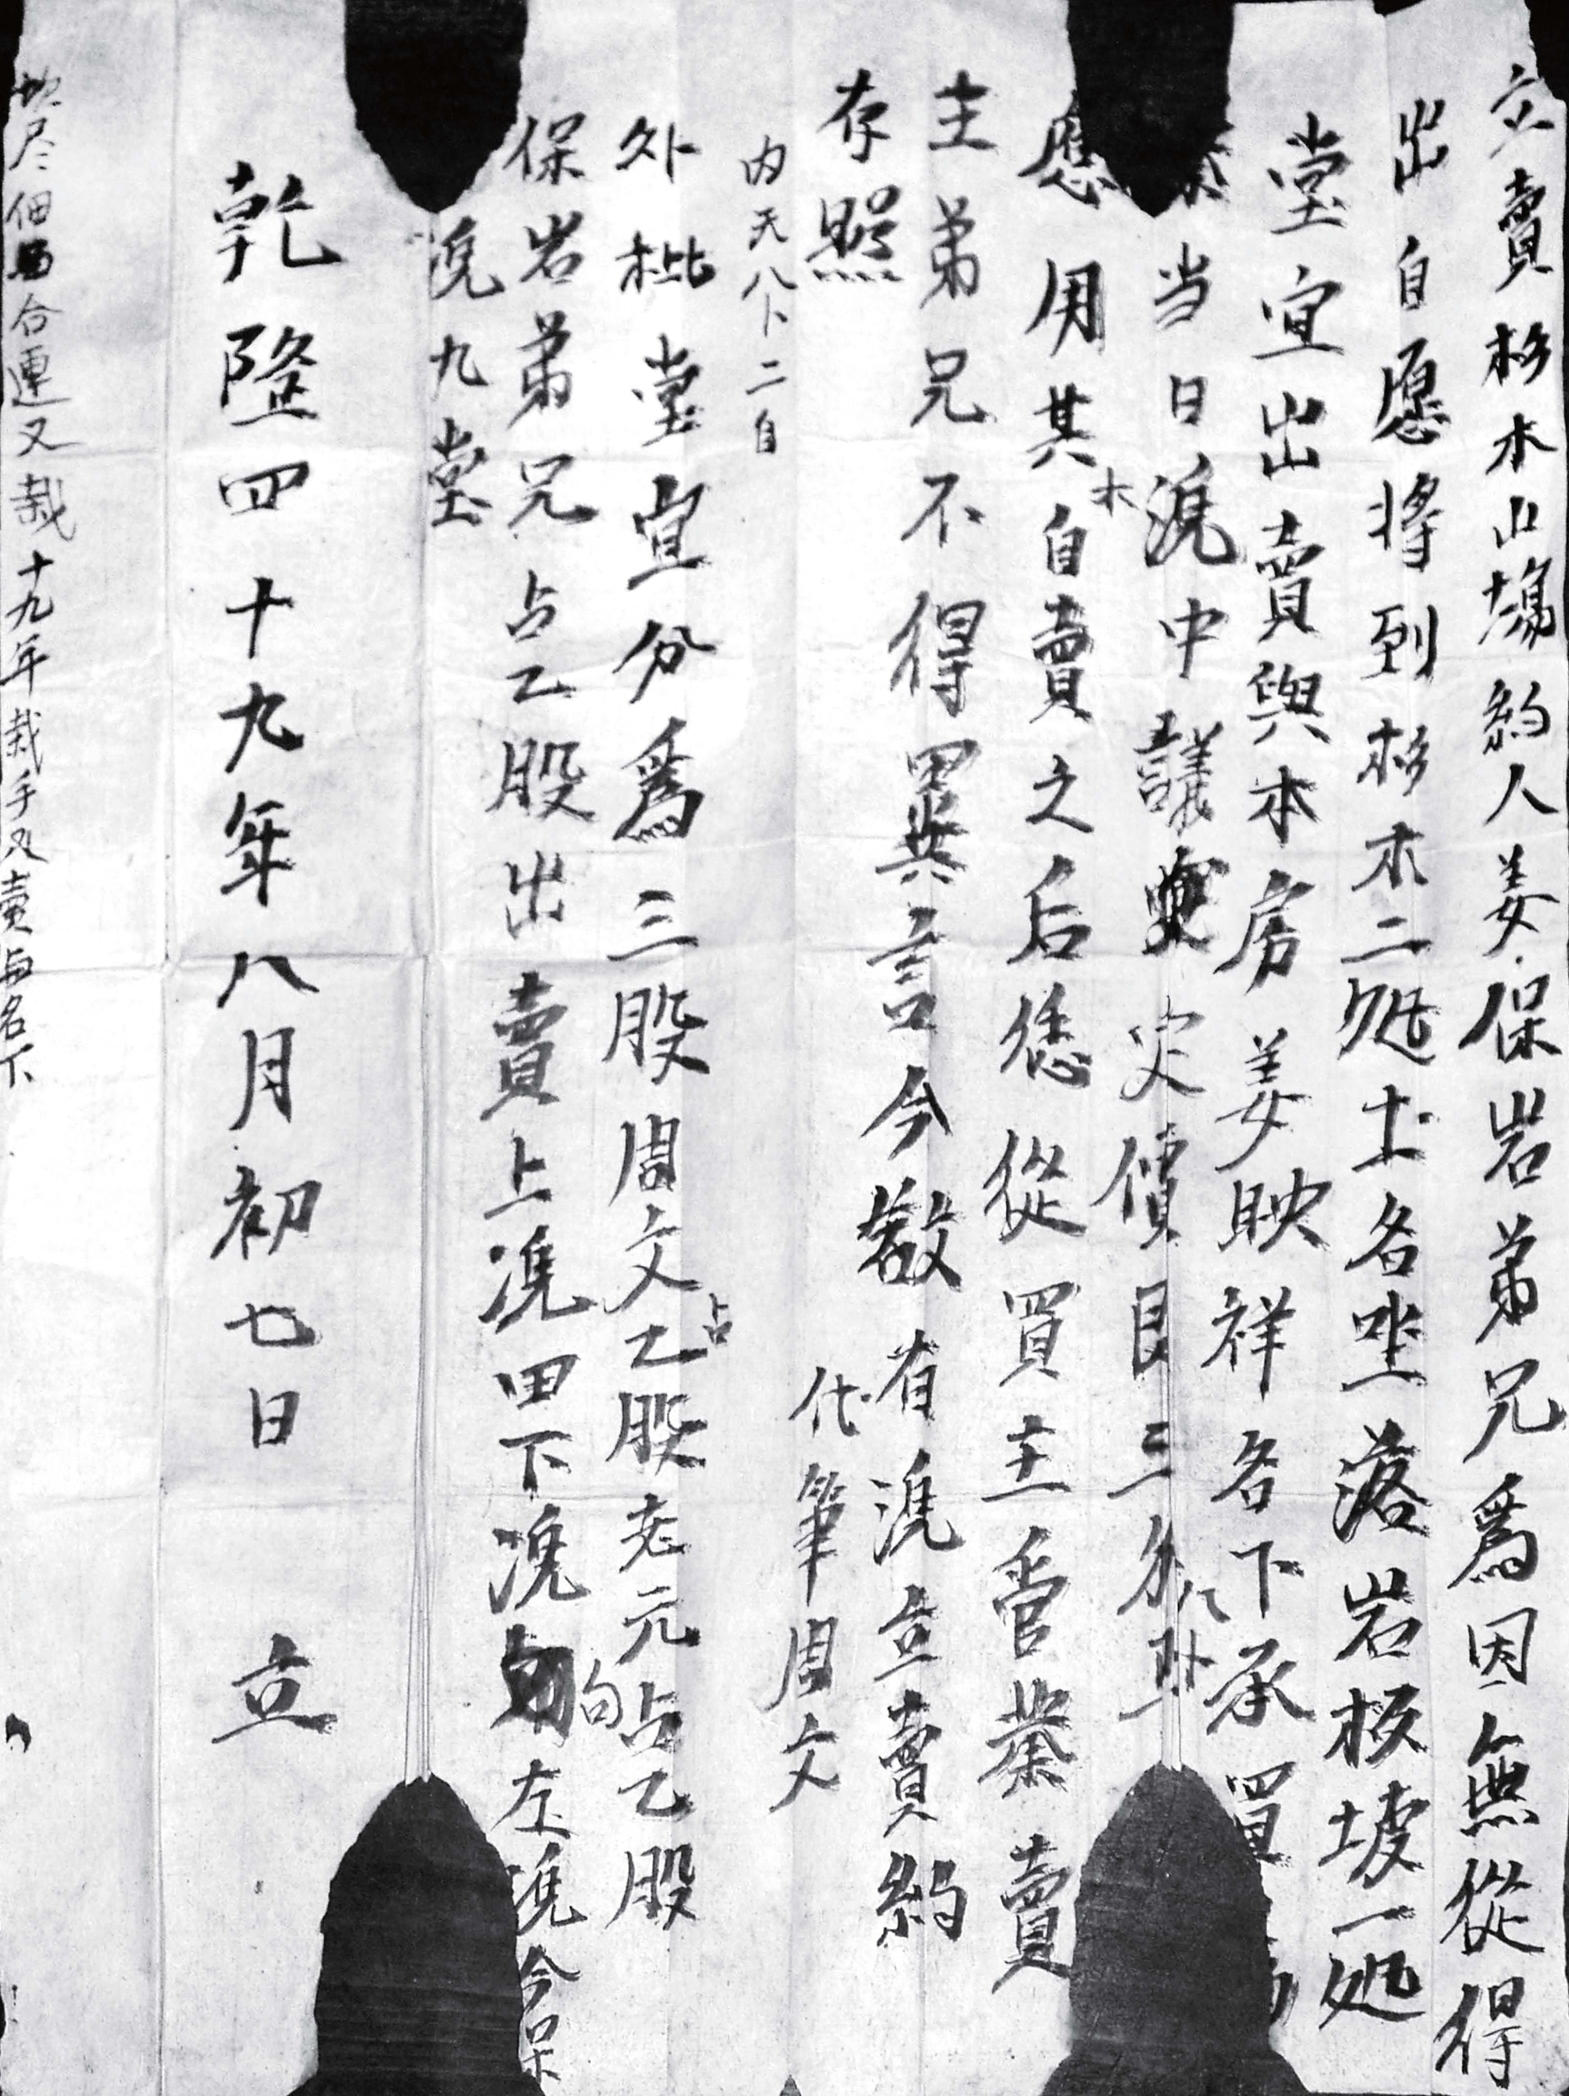 立賣杉木山塲約人姜保岩弟兄爲因無從得
出自愿將到杉木二処土名坐落岩板坡一処
堂宜出賣與本房姜映祥名下承買爲
当日凴中議定價艮三
應用其木自賣之后恁從買主管業賣
主弟兄不得異言今欲有凴立賣約
存照
代筆周文
内天八卜二自
外枇堂宜分爲三股周文占乙股老元占乙股
保岩弟兄占乙股出賣上凴田下凴勾左凴今保
凴九堂
乾隆四十九年八月初七日 立
尽佃合連又栽十九年栽手又賣与名下